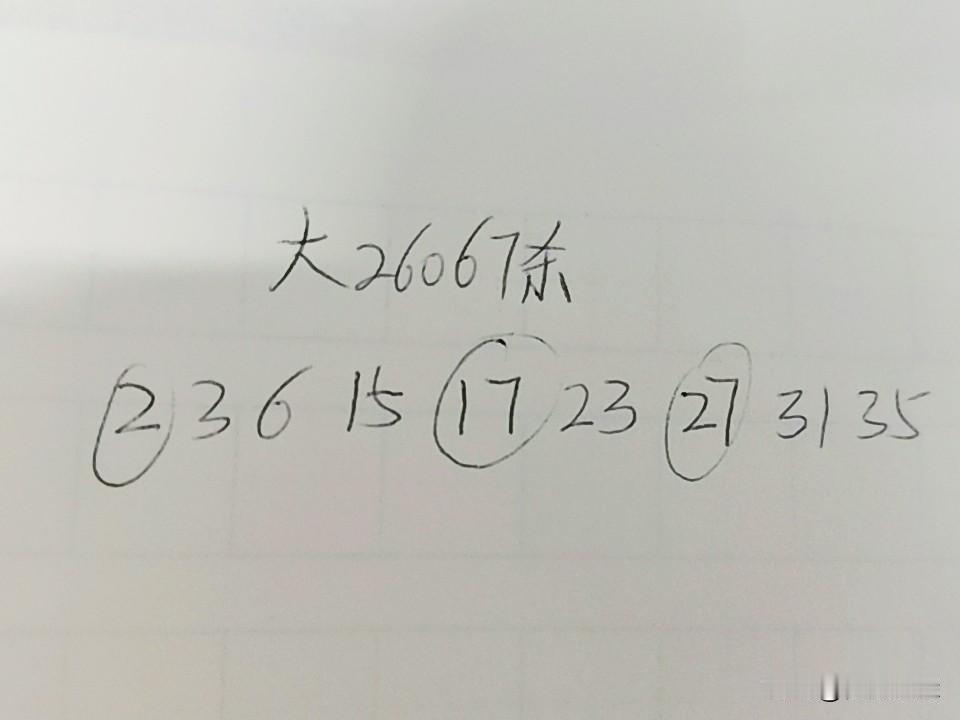 大26067杀
2 3 6 15 17 23 27 31 35